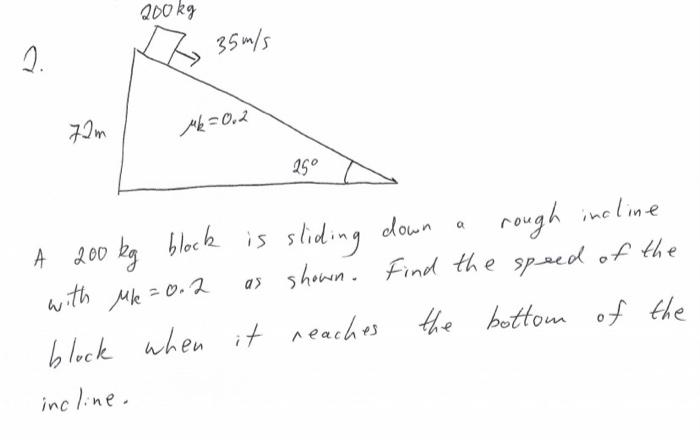 200kg
35m/s
2.
72m
μk=0.2
25°
A 200 kg block is sliding down a rough incline
with μk=0.2 as shown. Find the speed of the
block when it reaches the bottom of the
incline.